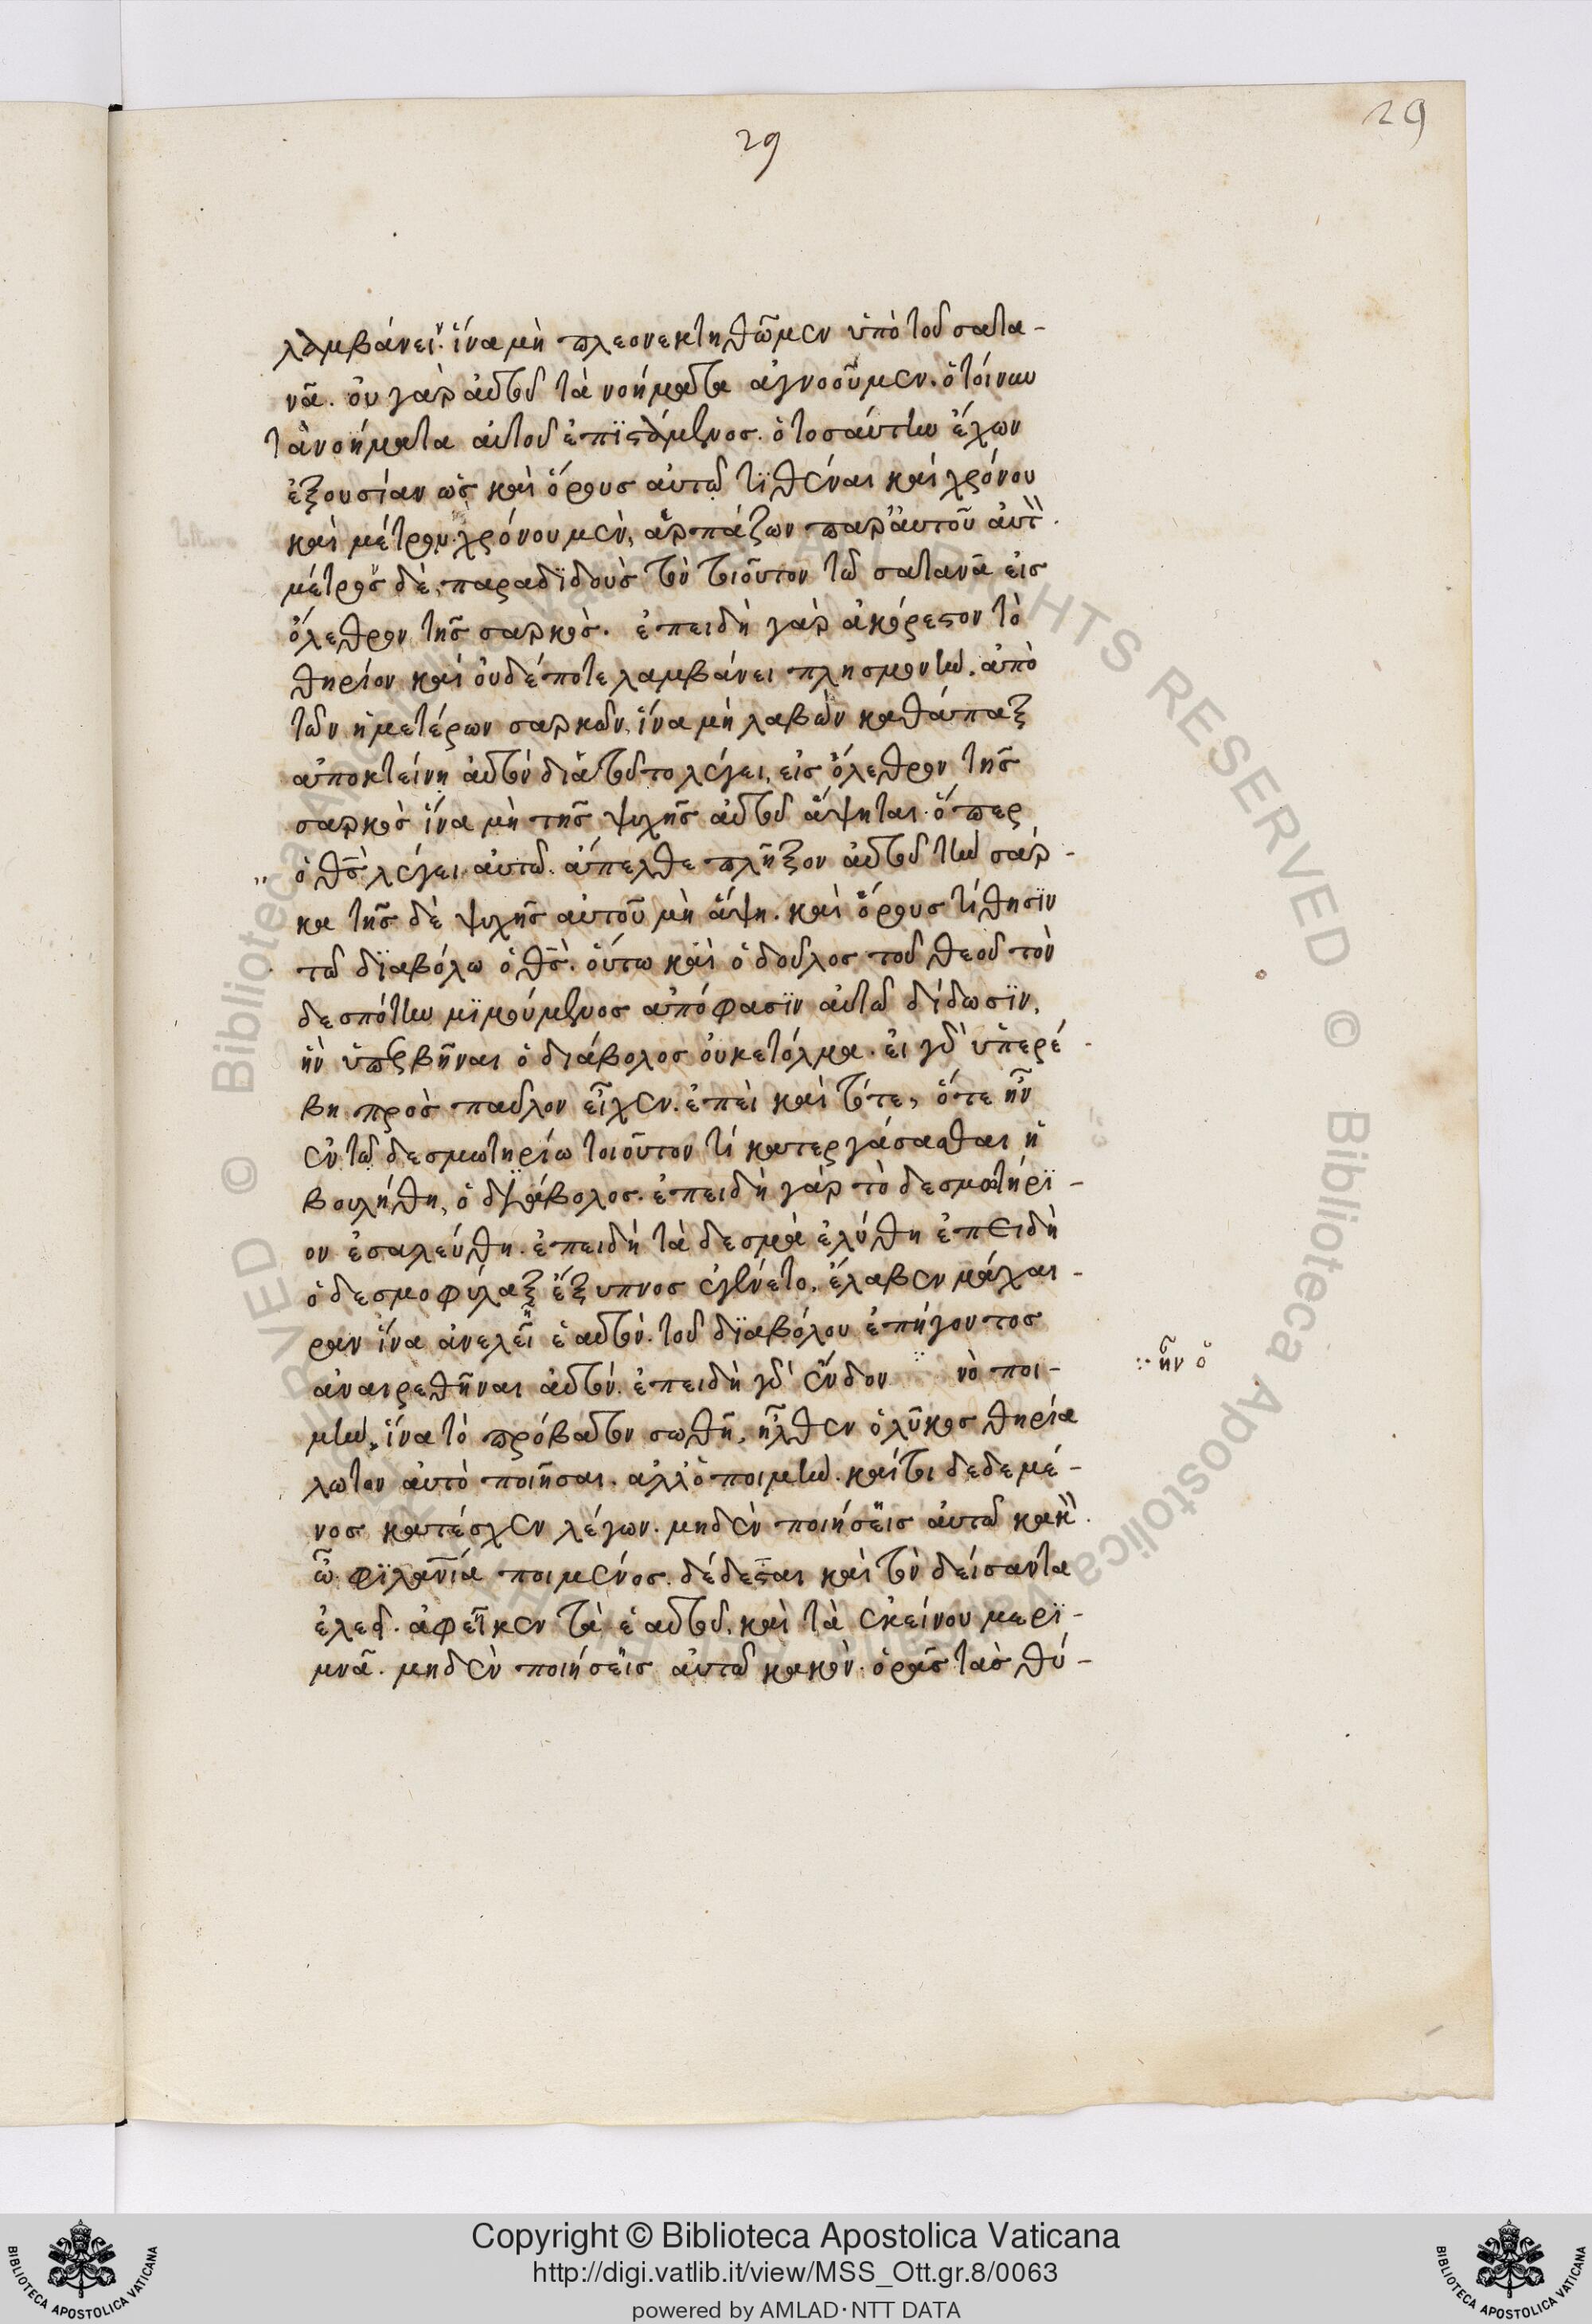 29
29
λαμβάνειν. ἵνα μὴ πλεονεκτηθῶμεν ὑπὸ τοῦ σατα-
νᾶ. οὐ γὰρ αὐτοῦ τὰ νοήματα ἀγνοοῦμεν. ὁ τοίνυν
τὰ νοήματα αὐτοῦ ἐπϊστάμενος. ὁ τοσαύτην ἔχων
ἐξουσίαν ὡς καὶ ὅρους αὐτῷ τϊθέναι καὶ χρόνου
καὶ μέτρου. χρόνου μὲν, ἁρπάζων παρ' αὐτοῦ αὐτ̀.
μέτρου δὲ, παραδϊδοὺς τὸν τοιοῦτον τῶ σατανᾶ εἰς
ὄλεθρον τῆς σαρκὸς. ἐπειδὴ γὰρ ἀκόρεστον τὸ
θηρίον καὶ οὐδέποτε λαμβάνει πλησμονὴν. ἀπὸ
τῶν ἡμετέρων σαρκῶν, ἵνα μὴ λαβὼν καθάπαξ
ἀποκτείνη αὐτὸν διὰ τοῦτο λέγει, εἰς ὄλεθρον τῆς
σαρκὸς ἵνα μὴ τῆς ψυχῆς αὐτοῦ ἅψηται. ὅπερ
ὁ θς λέγει αὐτῶ. ἄπελθε πλῆξον αὐτοῦ τὴν σάρ-
κα τῆς δὲ ψυχῆς αὐτοῦ μὴ ἅψη. καὶ ὅρους τίθησϊν
τῶ δϊαβόλω ὁ θς. οὕτω καὶ ὁ δοῦλος τοῦ θεοῦ τὸν
δεσπότην μϊμούμενος ἀπόφασϊν αὐτῶ δίδωσϊν,
ἣν ὑπερβῆναι ὁ διάβολος οὐκετόλμα. εἰ γὰρ ὑπερέ-
βη πρὸς παῦλον εἶχεν. ἐπεὶ καὶ τότε, ὅτε ἦν
ἐν τῶ δεσμωτηρίω τοιοῦτον τί κατεργάσασθαι ἠ
βουλήθη, ὁ διάβολος. ἐπειδὴ γὰρ τὸ δεσμωτήρϊ-
ον ἐσαλεύθη. ἐπειδὴ τὰ δεσμὰ ἐλύθη ἐπειδὴ
ὁ δεσμοφύλαξ ἔξυπνος ἐγένετο, ἔλαβεν μάχαι-
ραν ἵνα ἀνελεῖ ἑαυτὸν. τοῦ δϊαβόλου ἐπήγοντος
ἀναιρεθῆναι αὐτὸν. ἐπειδὴ γὰρ ἔνδον νὸ ποι-
μὴν, ἵνα τὸ πρόβατον σωθῆ, ἦλθεν ὁ λῦκος θηρία
λωτον αὐτὸ ποιῆσαι. ἀλλ' ὁ ποιμὴν. καίτοι δεδεμέ-
νος κατέσχεν λέγων. μηδὲν ποιήσεις αὐτῶ κακ̀.
ὦ φϊλανία ποιμένος. δέδεται καὶ τὸν δείσαντα
ἐλεεῖ. ἀφεῖκεν τὰ ἑαυτοῦ, καὶ τὰ ἐκείνου μερϊ-
μνᾶ. μηδὲν ποιήσεις αὐτῶ κακὸν. ὁρᾶς τὰς θύ-
ἦν ὁ
Copyright © Biblioteca Apostolica Vaticana
http://digi.vatlib.it/view/MSS_Ott.gr.8/0063
powered by AMLAD·NTT DATA